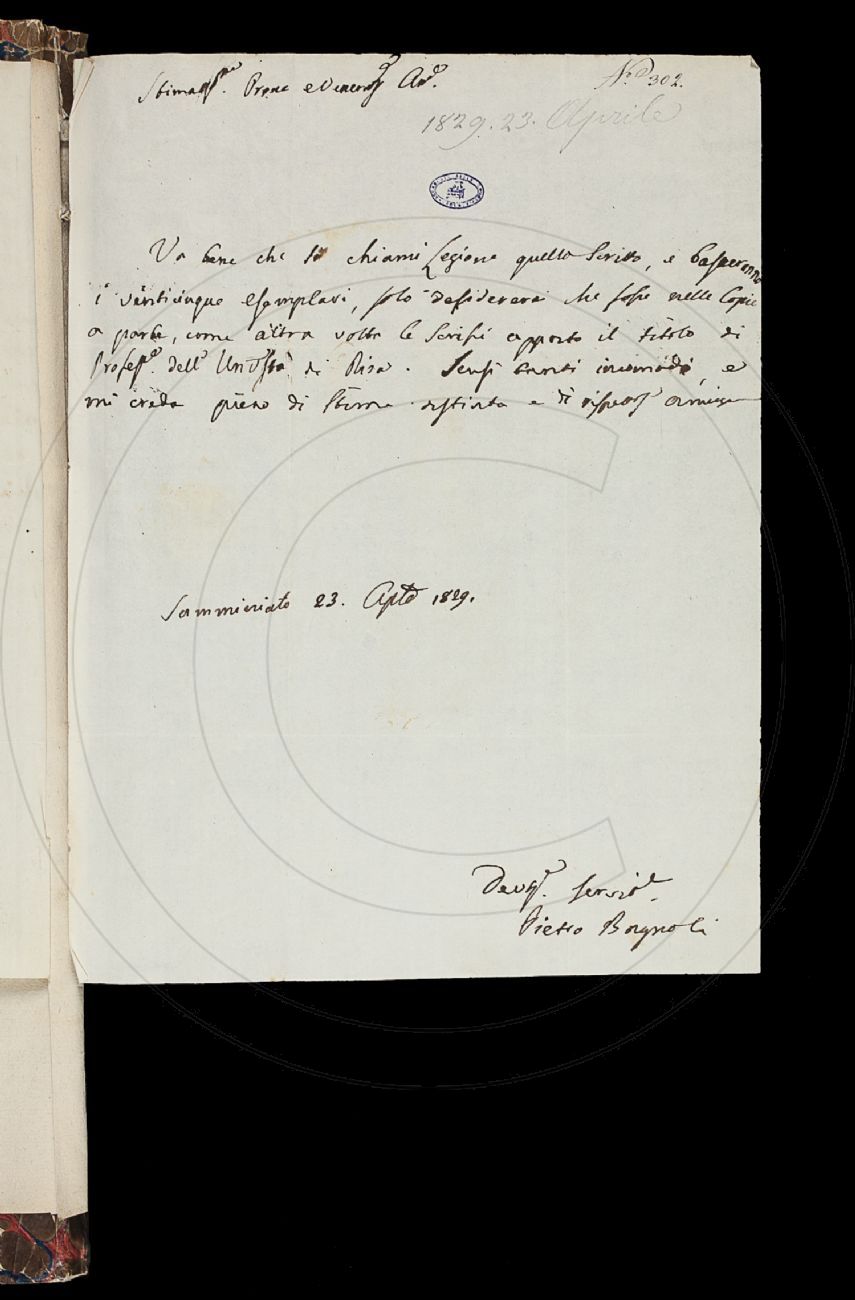 Stimatiss.mo Prone e Veneros Am.o
N.o 302.
1829. 23. Aprile
Va bene che si chiami Lezione quello scritto, e basteranno
i venticinque esemplari, solo desidererei che fosse nelle Copie
a parte, come altra volta le scrissi apposto il titolo di
Profess.e dell' Un.stà di Pisa. Scusi tanti incomodi, e
mi creda pieno di stima distinta e di rispetto
Samminiato 23. Aple 1829.
Dev.mo Servit.e
Pietro Bagnoli